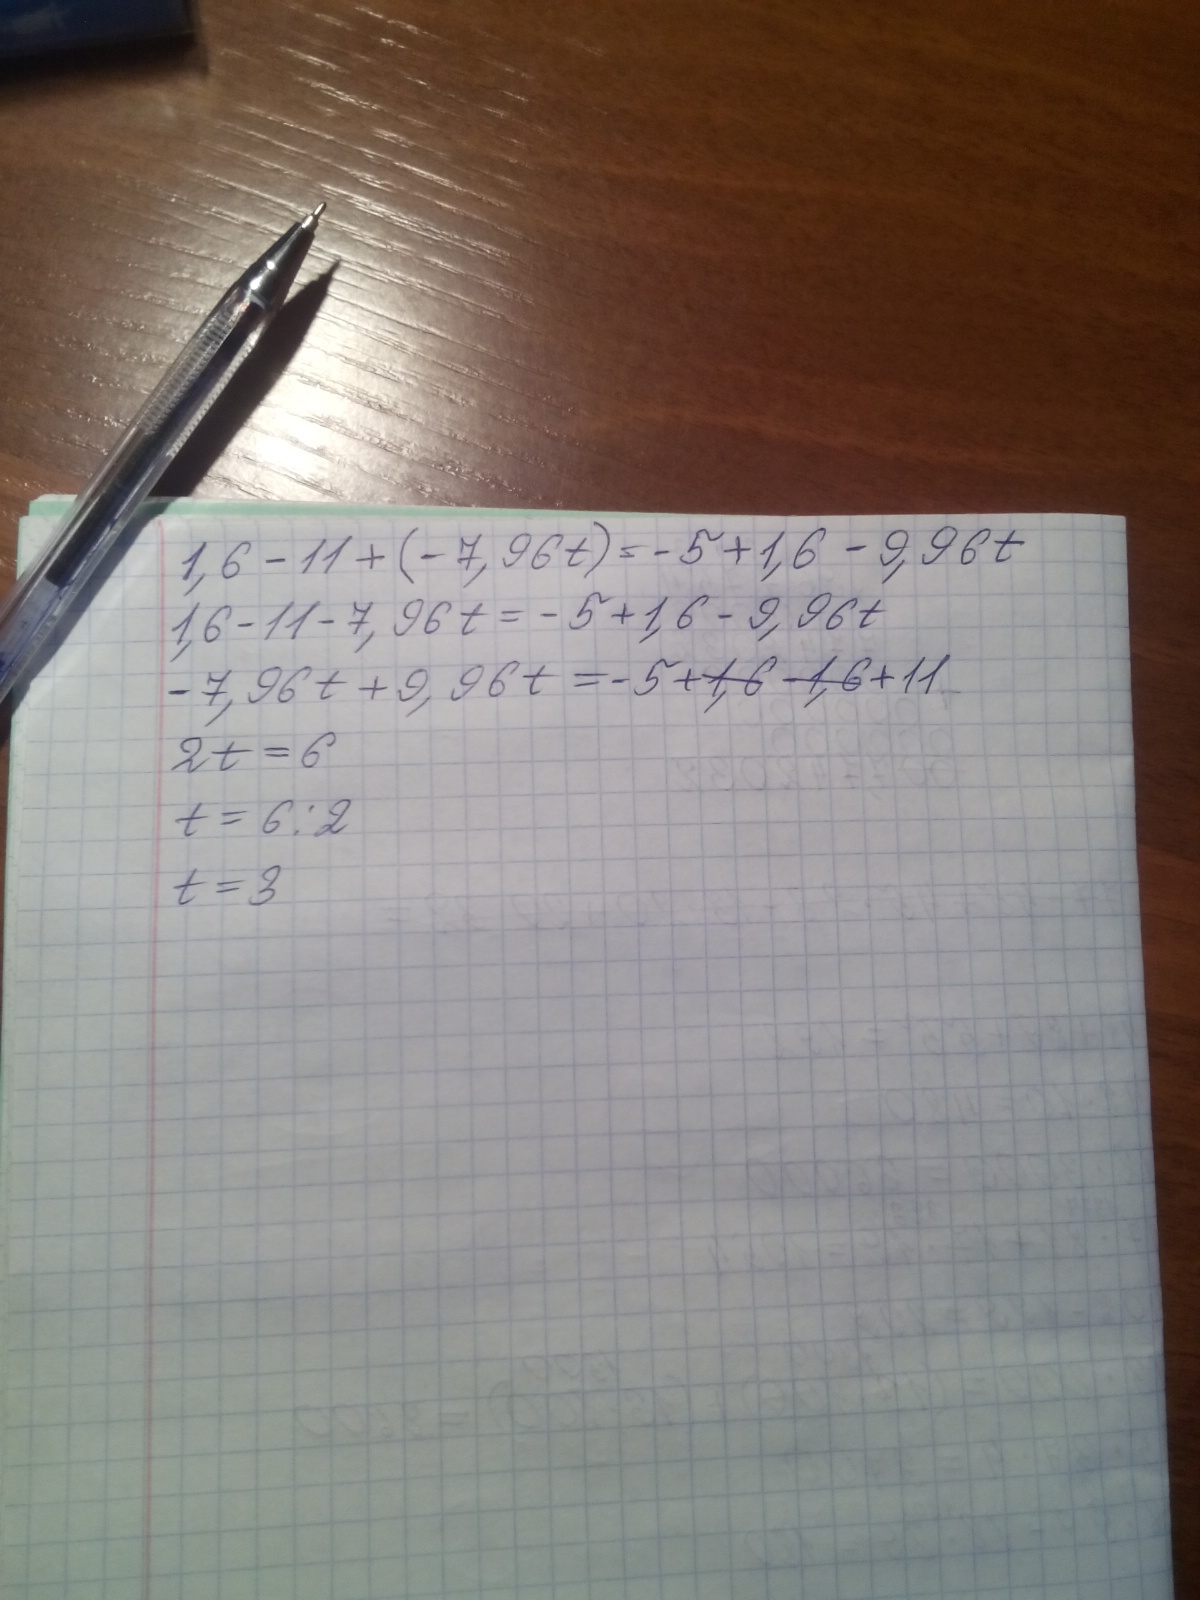 1,6 - 11 + (- 7,96t) = - 5 + 1,6 - 9,96t
1,6 - 11 - 7,96t = - 5 + 1,6 - 9,96t
- 7,96t + 9,96t = - 5 + 1,6 - 1,6 + 11
2t = 6
t = 6 : 2
t = 3